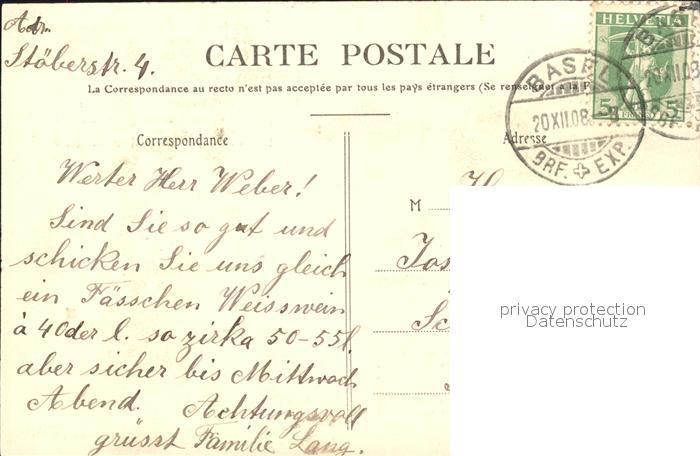 Adr.
Stöberstr. 4.
CARTE POSTALE
La Correspondance au recto n'est pas acceptée par tous les pays étrangers (Se renseigner à la P
HELVETIA
5 5
BASEL
20XII.08
BRF. EXP.
Correspondance
Werter Herr Weber!
Sind Sie so gut und
schicken Sie uns gleich
ein Fässchen Weisswein
à 40der l. so zirka 50-55l.
aber sicher bis Mittwoch
Abend. Achtungsvoll
grüsst Familie Lang.
Adresse
M
Jos
privacy protection
Datenschutz